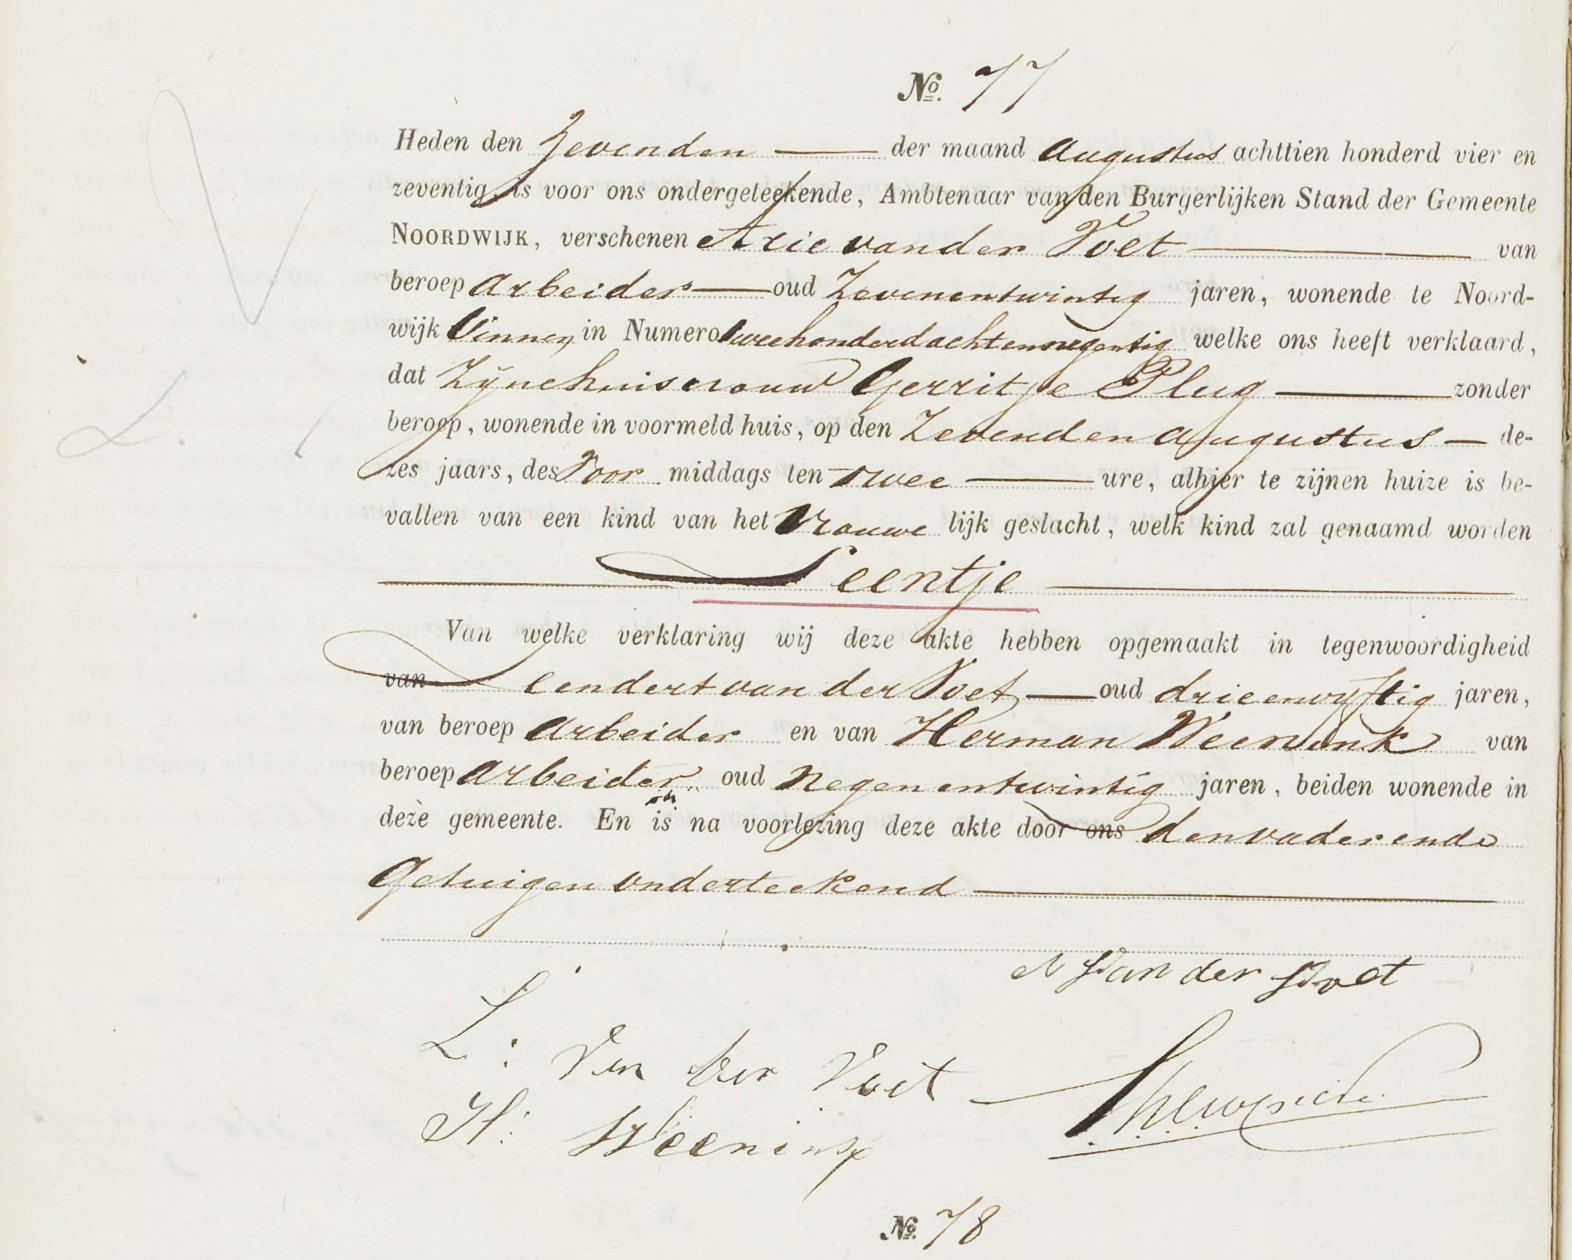 No. 77
Heden den Zevenden der maand Augustus achttien honderd vier en
zeventig, is voor ons ondergeteekende, Ambtenaar van den Burgerlijken Stand der Gemeente
NOORDWIJK, verschenen Arie van der Voet van
beroep Arbeider oud Zevenentwintig jaren, wonende te Noord-
wijk Binnen in Numero tweehonderdachtennegentig welke ons heeft verklaard,
dat Zijne huisvrouw Gerritje Plug zonder
beroep, wonende in voormeld huis, op den Zevenden Augustus de-
zes jaars, des Voor middags ten twee ure, alhier te zijnen huize is be-
vallen van een kind van het Vrouwe lijk geslacht, welk kind zal genaamd worden
Leentje
Van welke verklaring wij deze akte hebben opgemaakt in tegenwoordigheid
van Leendert van der Voet oud drieenvyftig jaren,
van beroep Arbeider en van Herman Weenink van
beroep Arbeider oud Negenentwintig jaren, beiden wonende in
deze gemeente. En is na voorlezing deze akte door ons den vader en de
Getuigen onderteekend
A van der Voet
L: Van der Voet
H: Weenink
No. 78